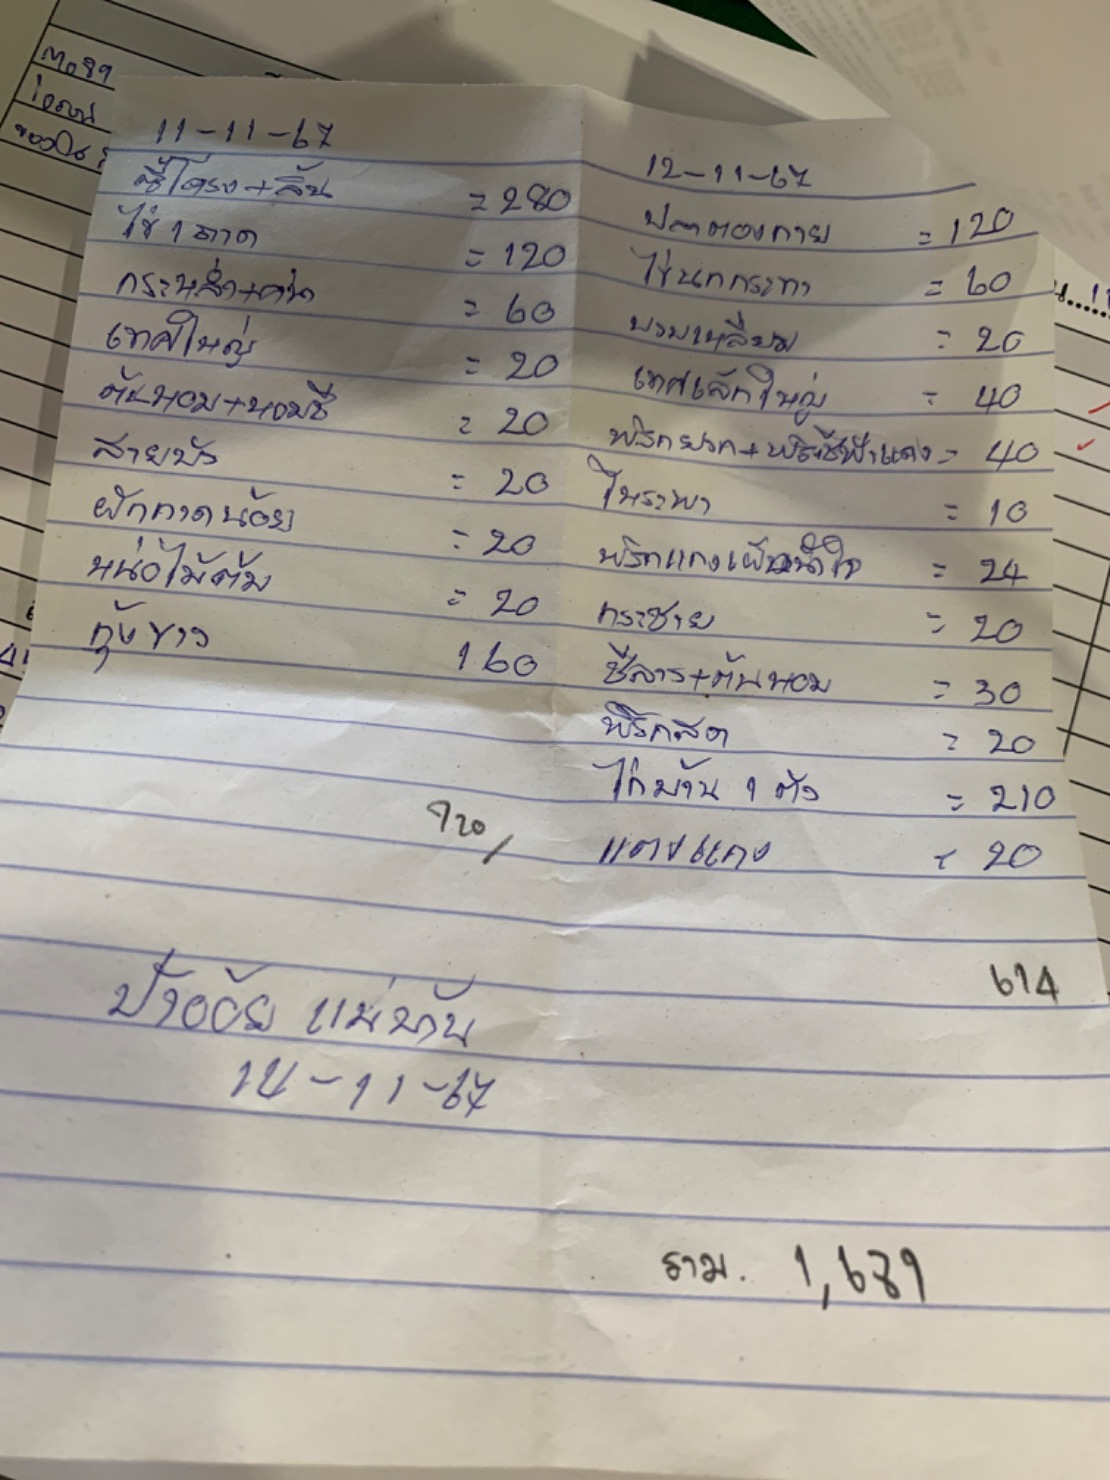 11-11-67
ซี่โครง+ลิ้น = 280
ไข่ 1 ถาด = 120
กระหล่ำ+คะน้า = 60
เทศใหญ่ = 20
ต้นหอม+หอมชี = 20
สายบัว = 20
ผักกาดน้อย = 20
หน่อไม้ต้ม = 20
กุ้งขาว 160
720/
12-11-67
ปลาตองกาย = 120
ไข่นกกระทา = 60
บวบเหลี่ยม = 20
เทศเล็กใหญ่ = 40
พริกยวก+พริกชี้ฟ้าแดง = 40
โหระพา = 10
พริกแกงเผ็ดน้ำใจ = 24
กระชาย = 20
ชีลาว+ต้นหอม = 30
พริกสด = 20
ไก่บ้าน 1 ตัว = 210
แตงแกง = 20
614
ป้าอ้อย แม่บ้าน
12-11-67
รวม. 1,631